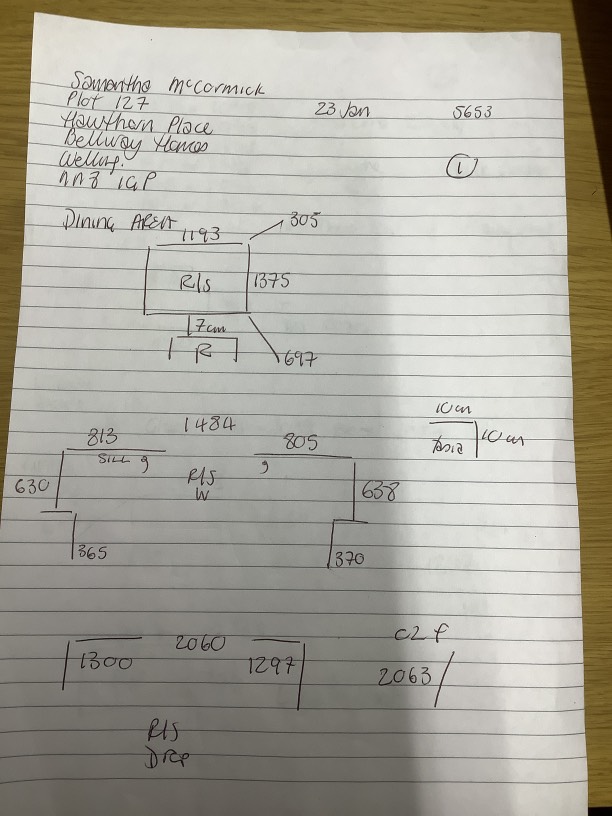 Samantha McCormick
Plot 127 23 Jan 5653
Hawthorn Place
Bellway Homes ①
NN8 1GP
Dining AREA 305
1193
R/S 1375
7cm
R 697
10cm
813 1484 805 10cm
SILL R/S
630 W 638
365 370
C2F
1300 2060 1297 2063
R/S